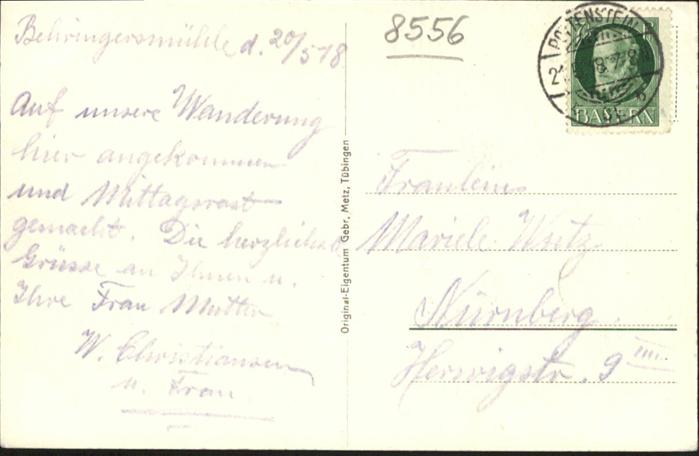 Behringersmühle d. 20/5 18
8556
Auf unsere Wanderung
hier angekommen
und Mittagsrast
gemacht. Die herzlichst
Grüsse an Ihnen u.
Ihre Frau Mutter
W. Christiansen
u. Frau
Original-Eigentum Gebr. Metz, Tübingen
POTTENSTEIN
BAYERN
Fräulein
Mariele
Nürnberg
Herwigstr. 9 III